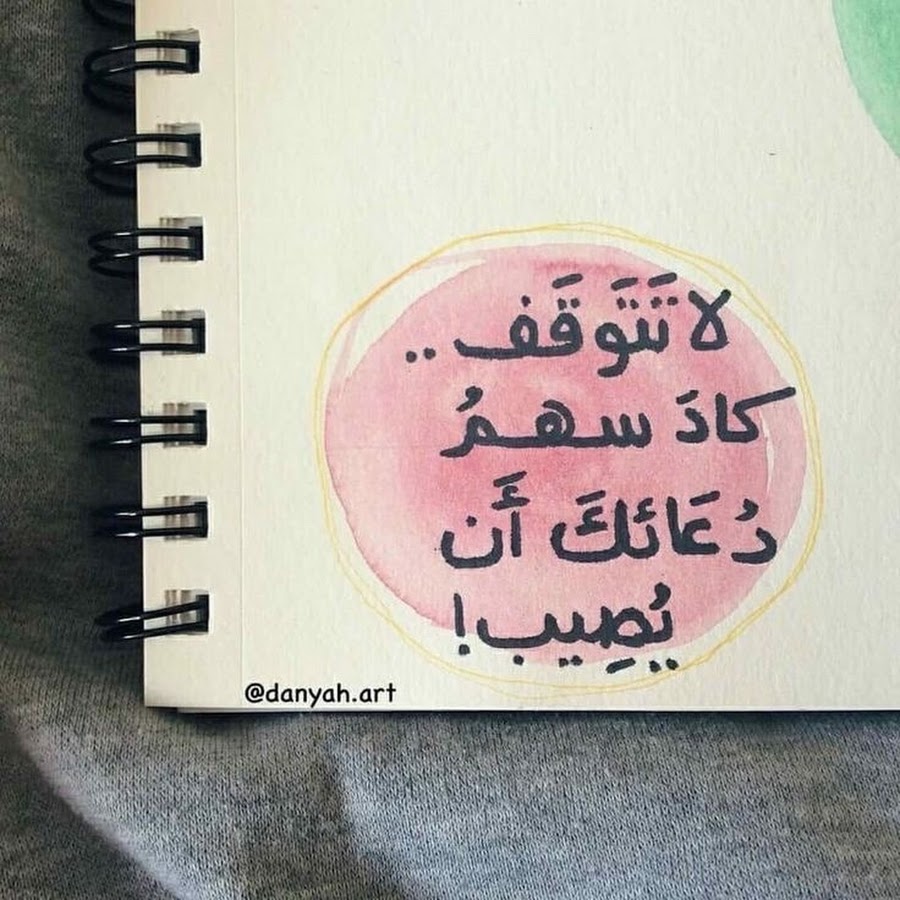 لا تَتَوقَف ..
كادَ سهمُ
دُعَائكَ أَن
يُصِيب!
@danyah.art